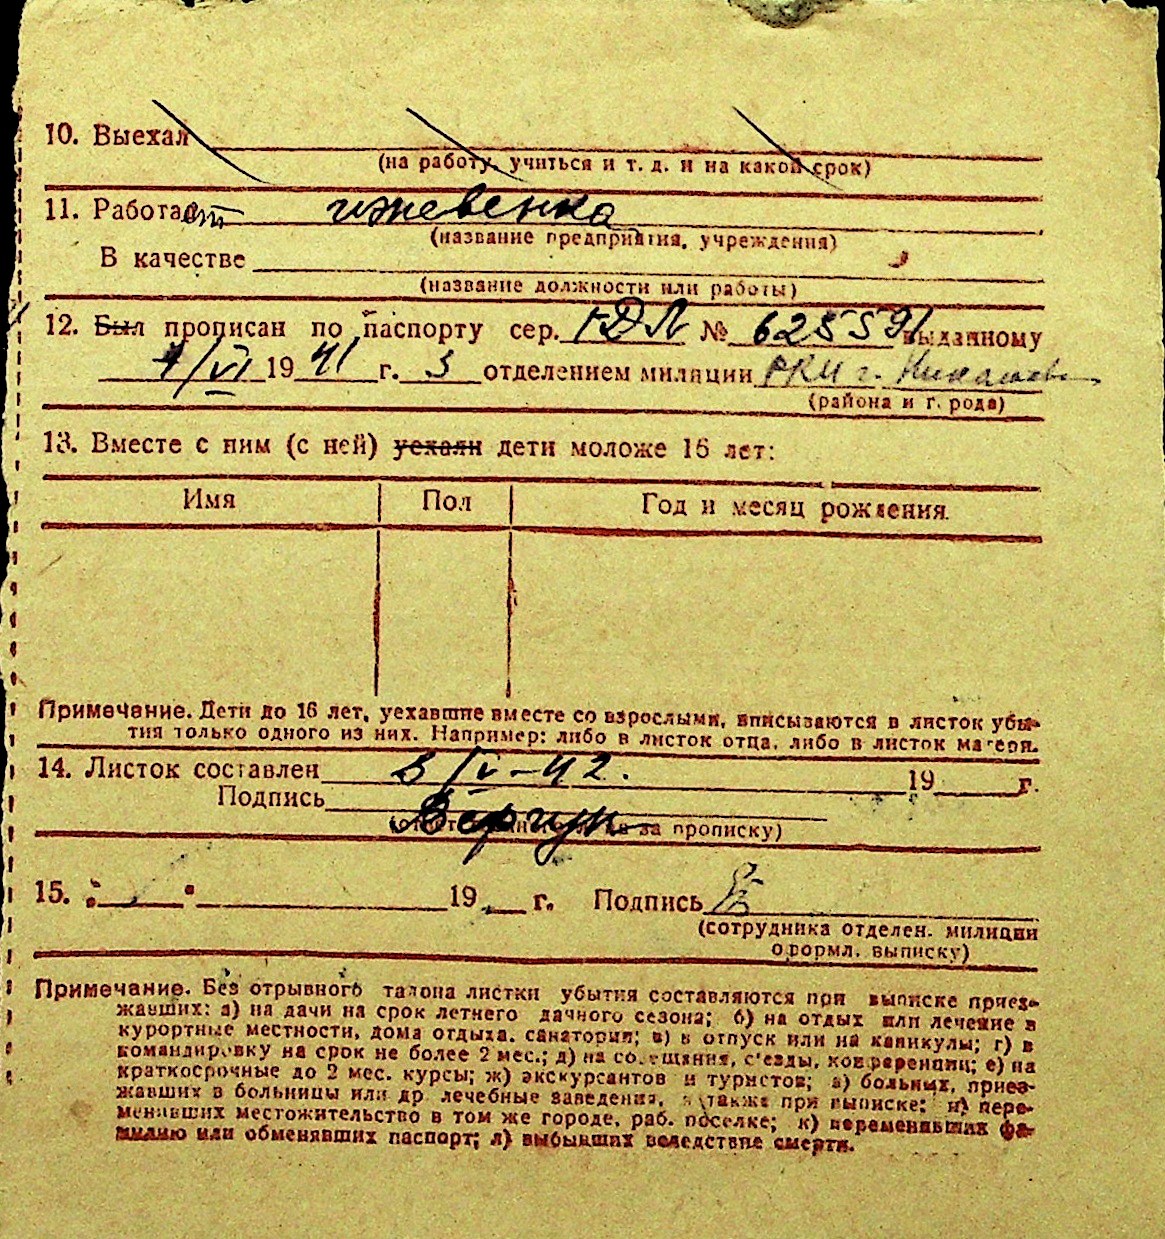 10. Выехал
(на работу, учиться и т. д. и на какой срок)
11. Работает иждевенка
(название предприятия, учреждения)
В качестве
(название должности или работы)
12. Был прописан по паспорту сер. № 625591 выданному
1941 г. 3 отделением милиции РКМ г.
(района и г. рода)
13. Вместе с ним (с ней) уехали дети моложе 16 лет:
Имя Пол Год и месяц рождения
Примечание. Дети до 16 лет, уехавшие вместе со взрослыми, вписываются в листок убы-
тия только одного из них. Например: либо в листок отца, либо в листок матери.
14. Листок составлен 42. 19 г.
Подпись
за прописку)
15. " " 19 г. Подпись
(сотрудника отделен. милиции
оформл. выписку)
Примечание. Без отрывного талона листки убытия составляются при выписке приез-
жавших: а) на дачи на срок летнего дачного сезона; б) на отдых или лечение в
курортные местности, дома отдыха, санатории; в) в отпуск или на каникулы; г) в
командировку на срок не более 2 мес.; д) на совещания, с'езды, конференции; е) на
краткосрочные до 2 мес. курсы; ж) экскурсантов и туристов; з) больных, приез-
жавших в больницы или др лечебные заведения, а также при выписке: и) пере-
менивших местожительство в том же городе, раб. поселке; к) переменивших фа-
милию или обменявших паспорт; л) выбывших вследствие смерти.